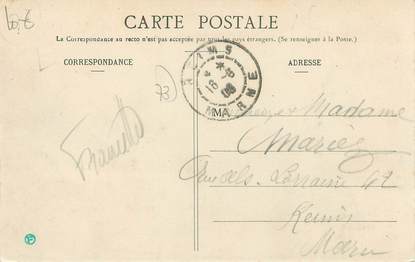 60 €
CARTE POSTALE
La Correspondance au recto n'est pas acceptée par tous les pays étrangers. (Se renseigner à la Poste.)
CORRESPONDANCE
ADRESSE
REIMS
* *
18 -8
08
MARNE
73
Madame
Rue Alsace-Lorraine 42
Reims